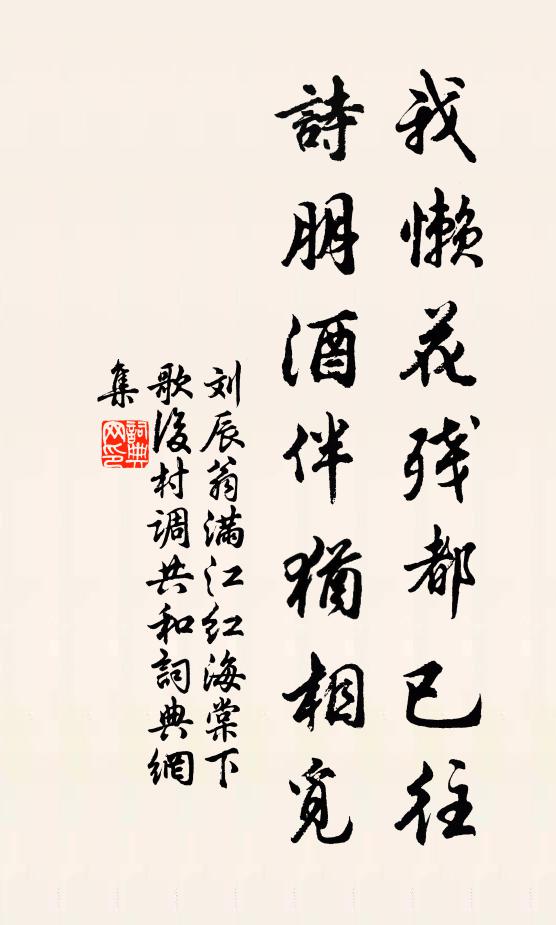 我懒花残都已往
詩朋酒伴猶相覓
刘辰翁满江红海棠下
歌後村调共和詞典網
集
詞典网印